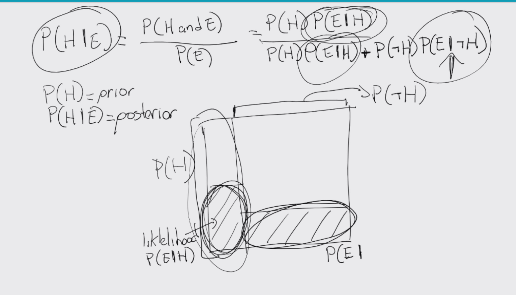 P(H|E) = P(H and E) / P(E) = P(H) P(E|H) / P(H) P(E|H) + P(¬H) P(E|¬H)
P(H) = prior
P(H|E) = posterior
P(¬H)
P(H)
liklelihood
P(E|H)
P(E|